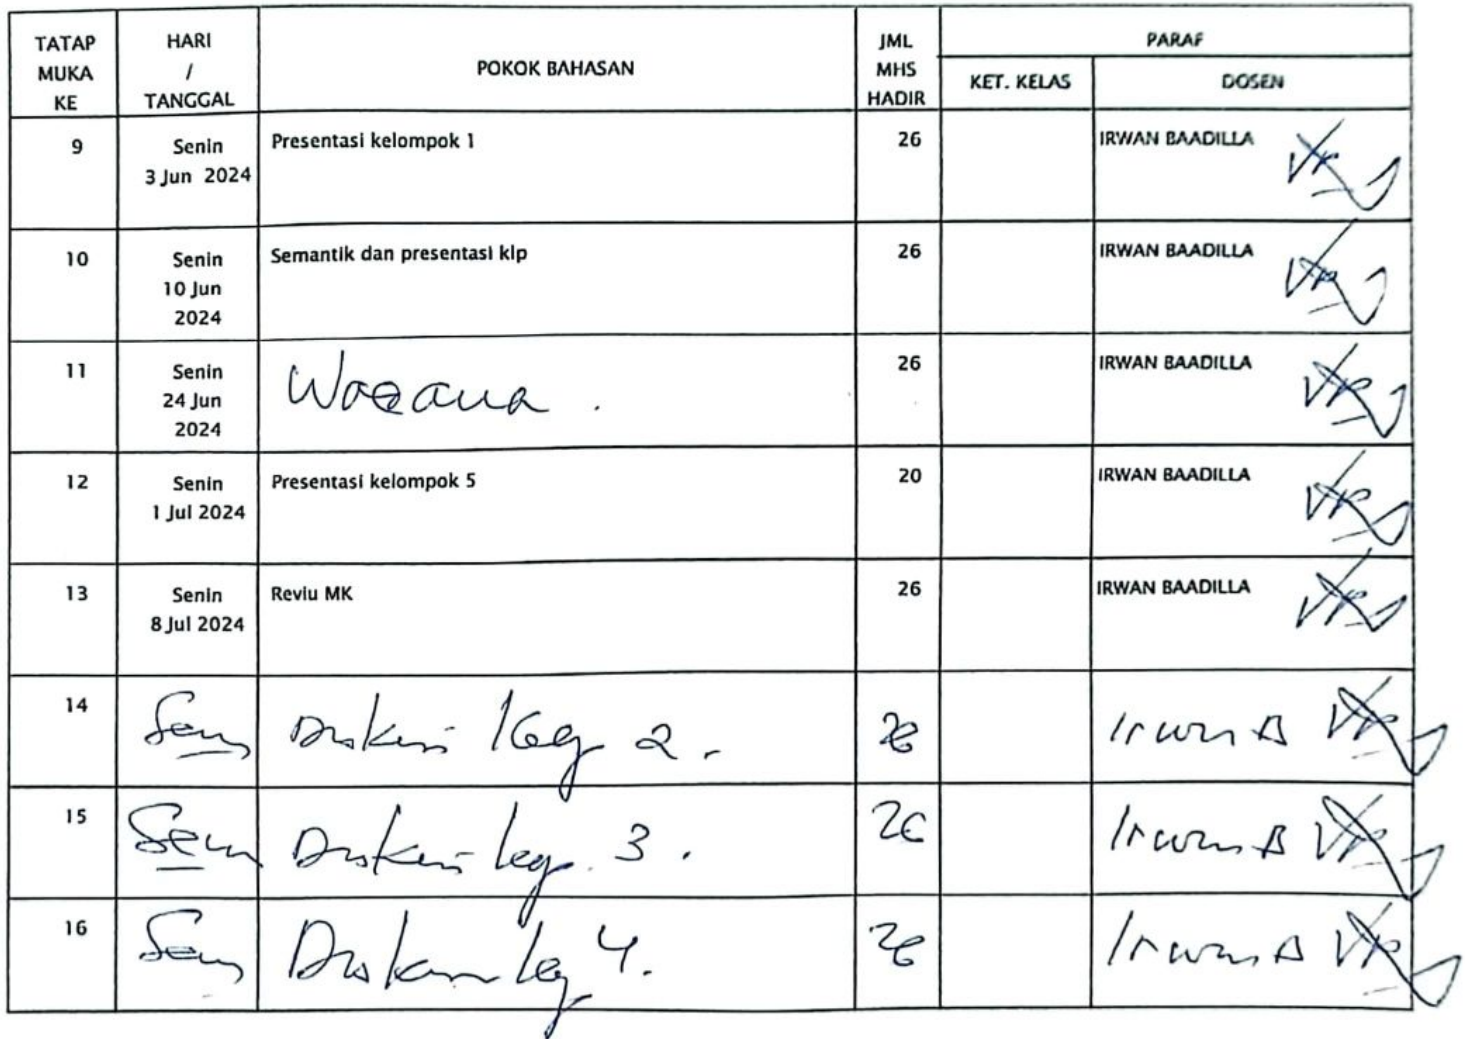 TATAP MUKA KE
HARI / TANGGAL
POKOK BAHASAN
JML MHS HADIR
PARAF
KET. KELAS
DOSEN
9
Senin
3 Jun 2024
Presentasi kelompok 1
26
IRWAN BAADILLA
10
Senin
10 Jun
2024
Semantik dan presentasi klp
26
IRWAN BAADILLA
11
Senin
24 Jun
2024
Wacana.
26
IRWAN BAADILLA
12
Senin
1 Jul 2024
Presentasi kelompok 5
20
IRWAN BAADILLA
13
Senin
8 Jul 2024
Reviu MK
26
IRWAN BAADILLA
14
Diskusi 2.
26
Irwan B
15
Diskusi 3.
26
Irwan B
16
Diskusi 4.
26
Irwan B